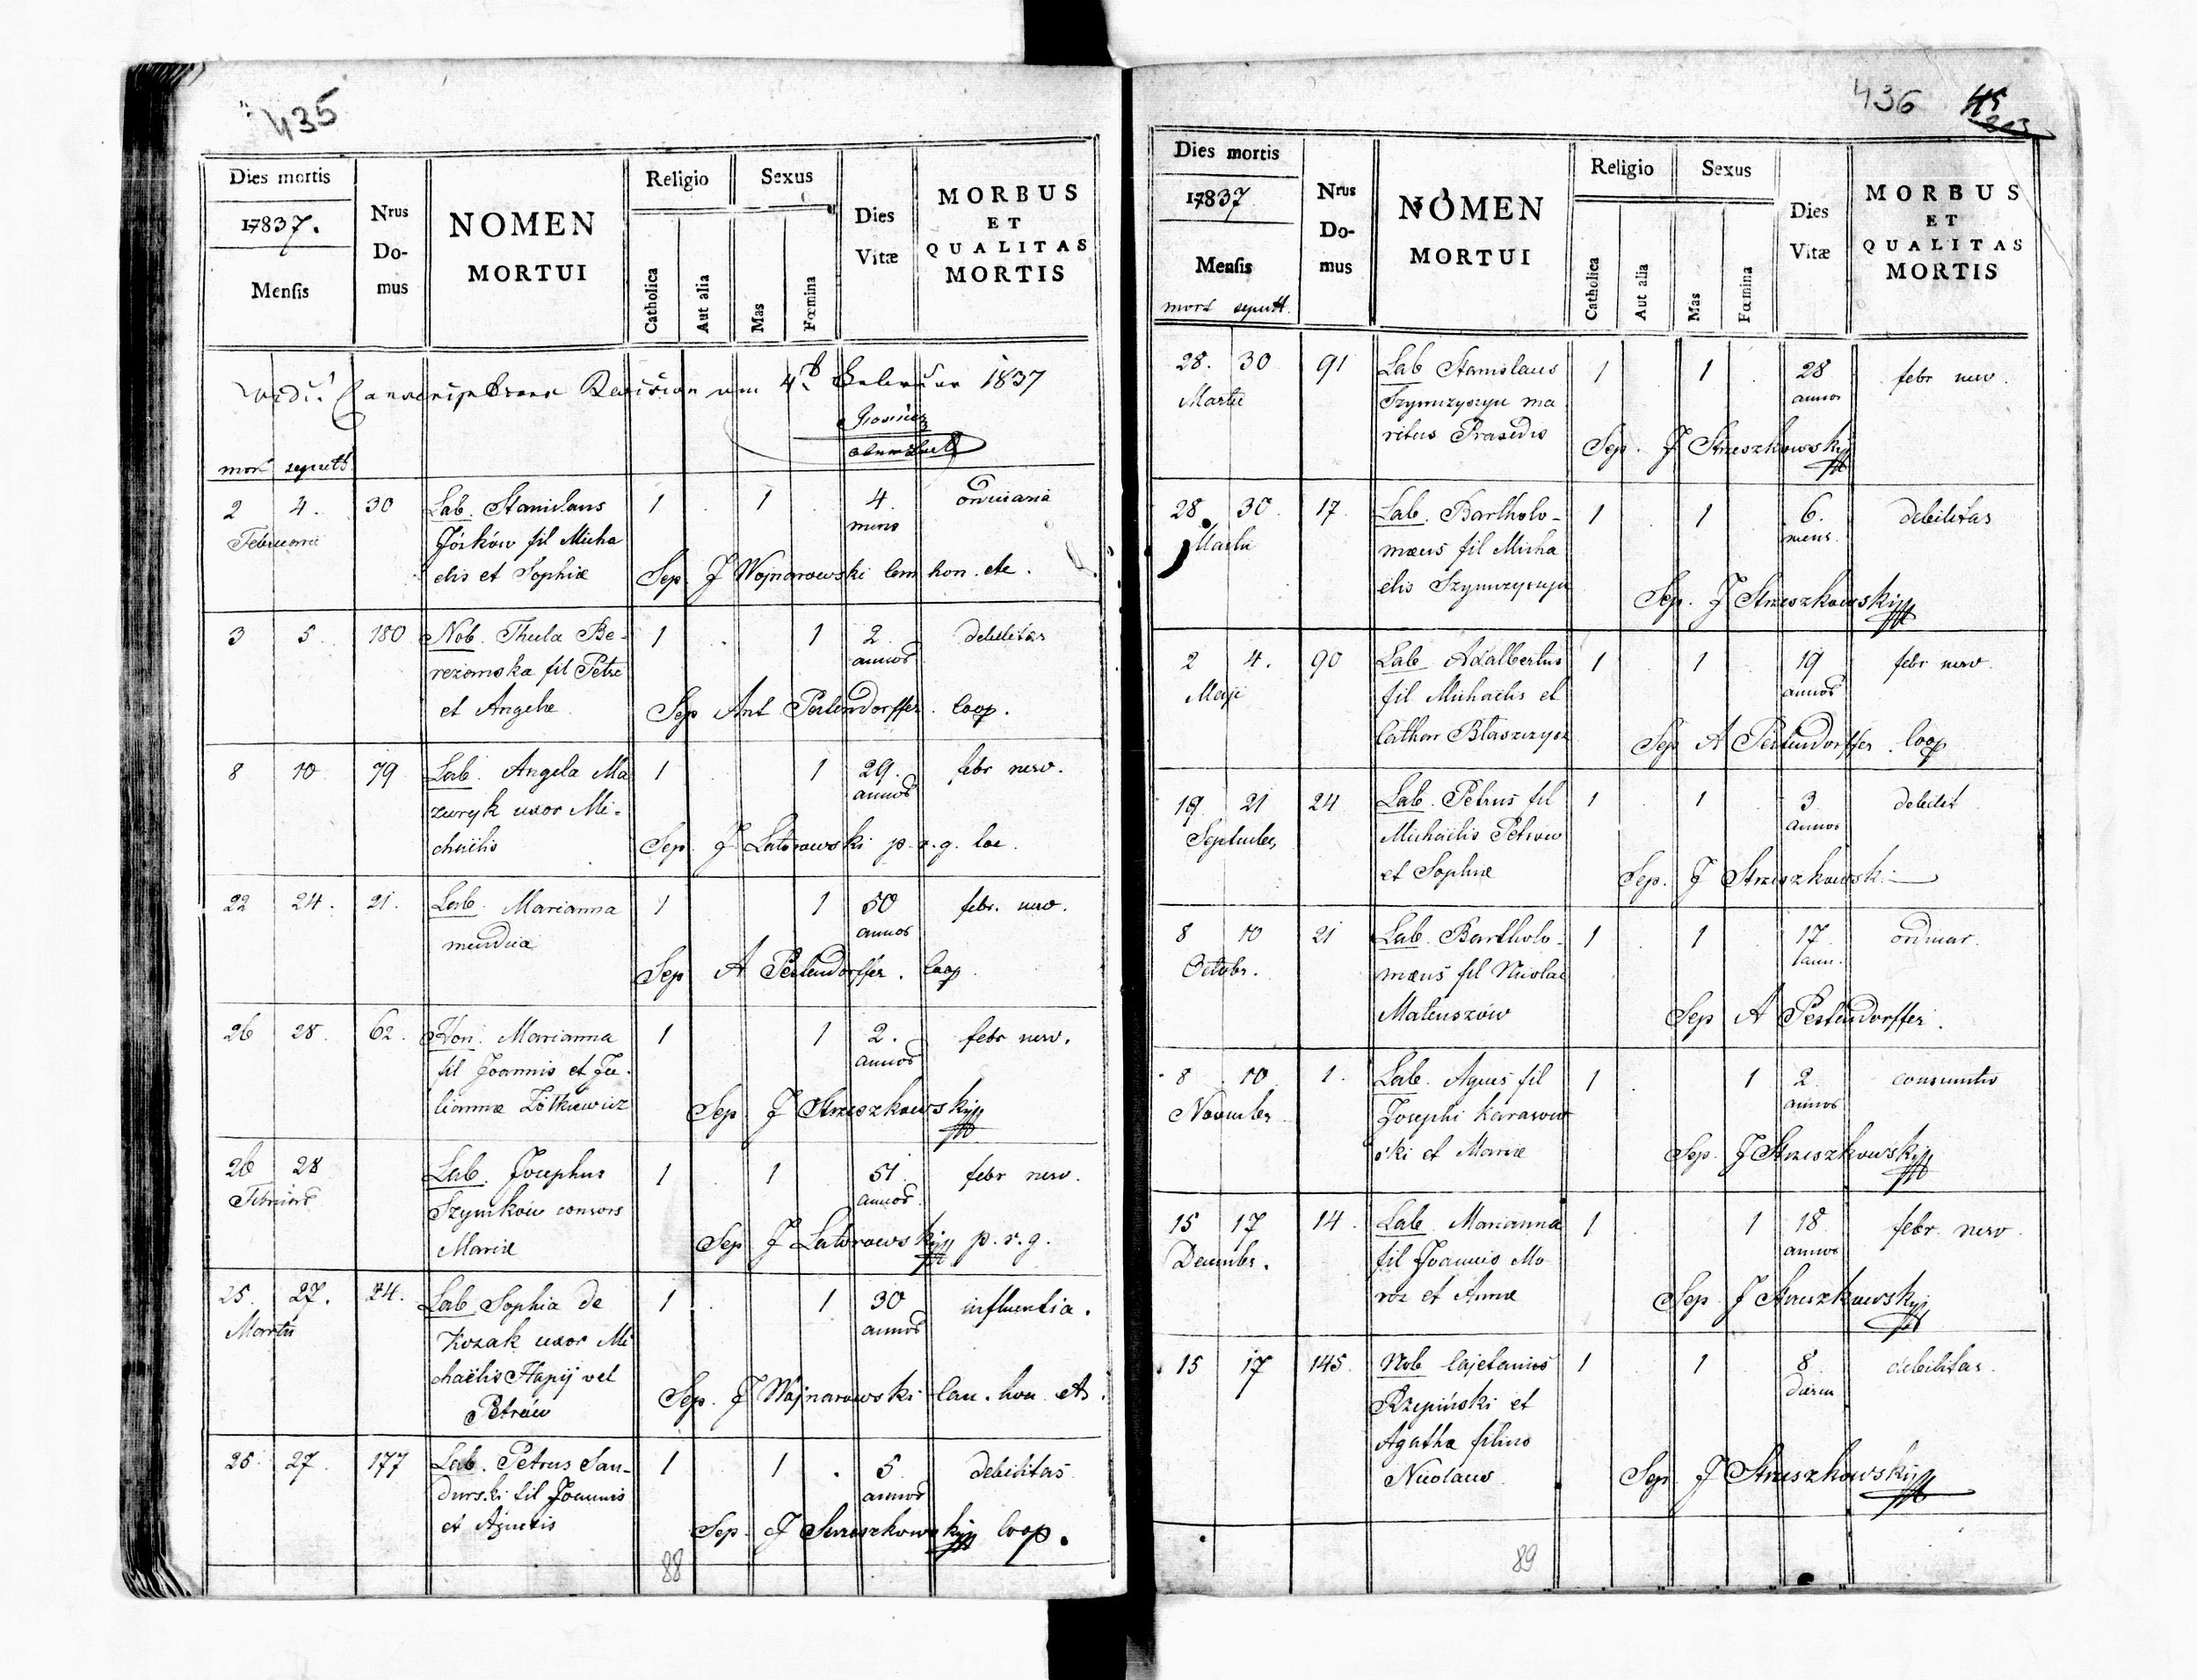 435
Dies mortis
17837.
Mensis
Nrus
Do-
mus
NOMEN
MORTUI
Religio
Catholica
Aut alia
Sexus
Mas
Fœmina
Dies
Vitæ
MORBUS
ET
QUALITAS
MORTIS
1837
mort sepult
2 4. 30 Lab. Stanislaus 1 1 4 ordinaria
Februarii Józków fil Micha mens
elis et Sophiæ Sep. J Wojnarowski can hon. etc.
3 5. 180 Nob. Thecla Be- 1 1 2 debilitas
rezowska fil Petri annos
et Angelæ Sep Ant Pestendorffer. Coop.
8 10 79 Lab. Angela Ma 1 1 29. febr nerv.
zuryk uxor Mi- annos
chaëlis Sep. J. Latorowski p. r. g. loc.
22 24. 21. Lab. Marianna 1 1 50 febr. nerv.
mendica annos
Sep A Pestendorffer. Coop
26 28. 62. Hon. Marianna 1 1 2. febr nerv.
fil Joannis et Ju- annos
liannæ Żółkiewicz Sep. J Strzeszkowski
26 28 Lab. Josephus 1 1 51. febr nerv.
Februarii Szymków consors annos
Mariæ Sep J Latorowski p. r. g.
25. 27. 24. Lab. Sophia de 1 1 30 influentia.
Martii Kozak uxor Mi annos
chaëlis Hapij vel Sep. J Wojnarowski Can. hon
Petrów
25 27. 177 Lab. Petrus San- 1 1 5 debilitas
durski fil Joannis annos
et Agnetis Sep. J Strzeszkowski Coop.
88
436
Dies mortis
17837
Mensis
mort sepult.
Nrus
Do-
mus
NOMEN
MORTUI
Religio
Catholica
Aut alia
Sexus
Mas
Fœmina
Dies
Vitæ
MORBUS
ET
QUALITAS
MORTIS
28. 30 91 Lab Stanislaus 1 1 28 febr nerv.
Martii Szymczyszyn ma annos
ritus Praxedis Sep. J Strzeszkowski
28. 30. 17. Lab. Bartholo- 1 1 6. debilitas
Martii mæus fil Micha mens.
elis Szymczyszyn Sep. J Strzeszkowski
2 4. 90 Lab Adalbertus 1 1 19 febr nerv.
Maji fil Michaelis et annos
Cathar Błaszczysz Sep A Pestendorffer. Coop
19. 21 24 Lab. Petrus fil 1 1 3 debilit
September, Michaëlis Petrow annos
et Sophiæ Sep. J Strzeszkowski
8 10 21 Lab. Bartholo- 1 1 17 ordinar.
Octobr. mæus fil Nicolai ann.
Mateuszów Sep A Pestendorffer.
8 10 1. Lab. Agnes fil 1 1 2
November Josephi Karasow annos
ski et Mariæ Sep. J Strzeszkowski
15 17 14. Lab. Marianna 1 1 18. febr. nerv.
Decembr. fil Joannis Mo annos
roz et Annæ Sep J Strzeszkowski
15 17 145. Nob Cajetanus 1 1 8 debilitas.
Rzepiński et dierum
Agatha filius
Nicolaus Sep J Strzeszkowski
89